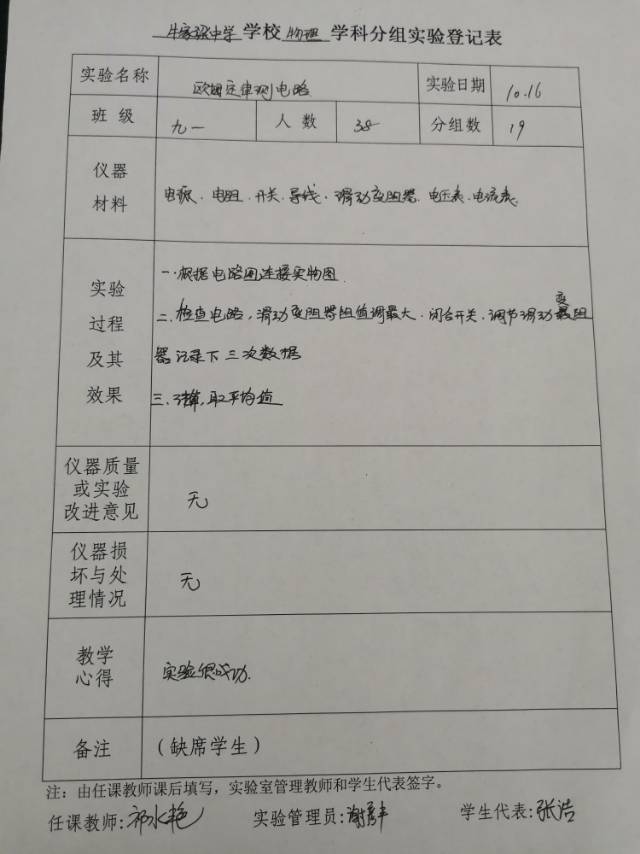 中学 学校 物理 学科分组实验登记表
实验名称 欧姆定律测电路 实验日期 10.16
班级 九一 人数 38 分组数 19
仪器材料 电源、电阻、开关、导线、滑动变阻器、电压表、电流表
实验过程及其效果
一.根据电路图连接实物图
二.检查电路,滑动变阻器阻值调最大.闭合开关、调节滑动变阻
器记录下三次数据
三.计算,取平均值
仪器质量或实验改进意见 无
仪器损坏与处理情况 无
教学心得 实验很成功.
备注 (缺席学生)
注:由任课教师课后填写,实验室管理教师和学生代表签字。
任课教师:祁水艳 实验管理员: 学生代表:张浩